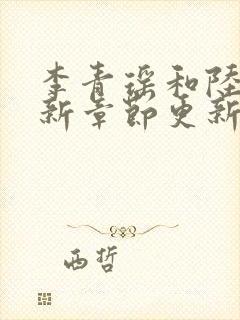 李青瑶和陸
新章節更新
西哲